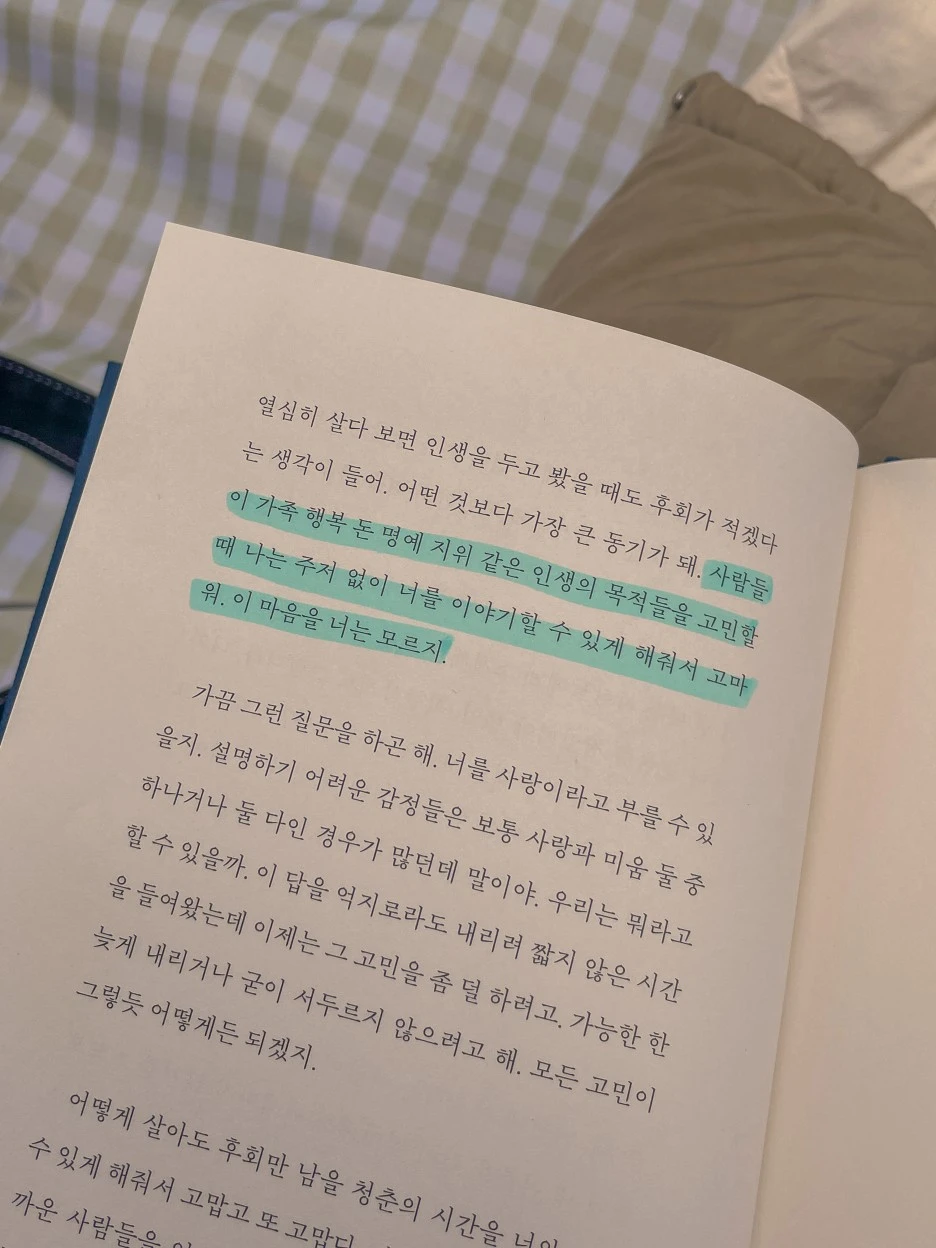 열심히 살다 보면 인생을 두고 봤을 때도 후회가 적겠다
는 생각이 들어. 어떤 것보다 가장 큰 동기가 돼. 사람들
이 가족 행복 돈 명예 지위 같은 인생의 목적들을 고민할
때 나는 주저 없이 너를 이야기할 수 있게 해줘서 고마
워. 이 마음을 너는 모르지.
가끔 그런 질문을 하곤 해. 너를 사랑이라고 부를 수 있
을지. 설명하기 어려운 감정들은 보통 사랑과 미움 둘 중
하나거나 둘 다인 경우가 많던데 말이야. 우리는 뭐라고
할 수 있을까. 이 답을 억지로라도 내리려 짧지 않은 시간
을 들여왔는데 이제는 그 고민을 좀 덜 하려고. 가능한 한
늦게 내리거나 굳이 서두르지 않으려고 해. 모든 고민이
그렇듯 어떻게든 되겠지.
어떻게 살아도 후회만 남을 청춘의 시간을
수 있게 해줘서 고맙고 또 고맙다
까운 사람들을